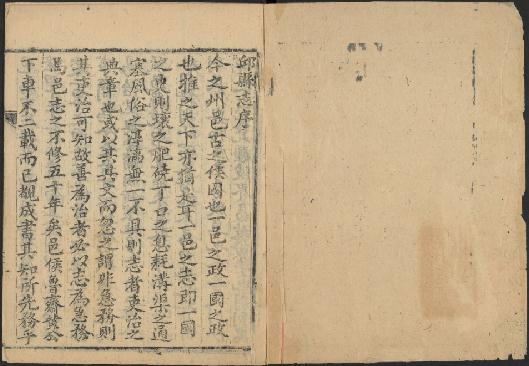 邱縣志序
今之州邑古之侯國也一邑之政一國之政
也推之天下亦猶是耳一邑之志即一國
之史則壤之肥磽丁口之息耗溝渠之通
塞風俗之淳漓無一不具則志者吏治之
典章也或以其具文而忽之謂非急務則
其吏治可知故善為治者必以志為急務
焉邑志之不修五十年矣邑侯魯齋黃公
下車不二載而已覩成書其知所先務乎